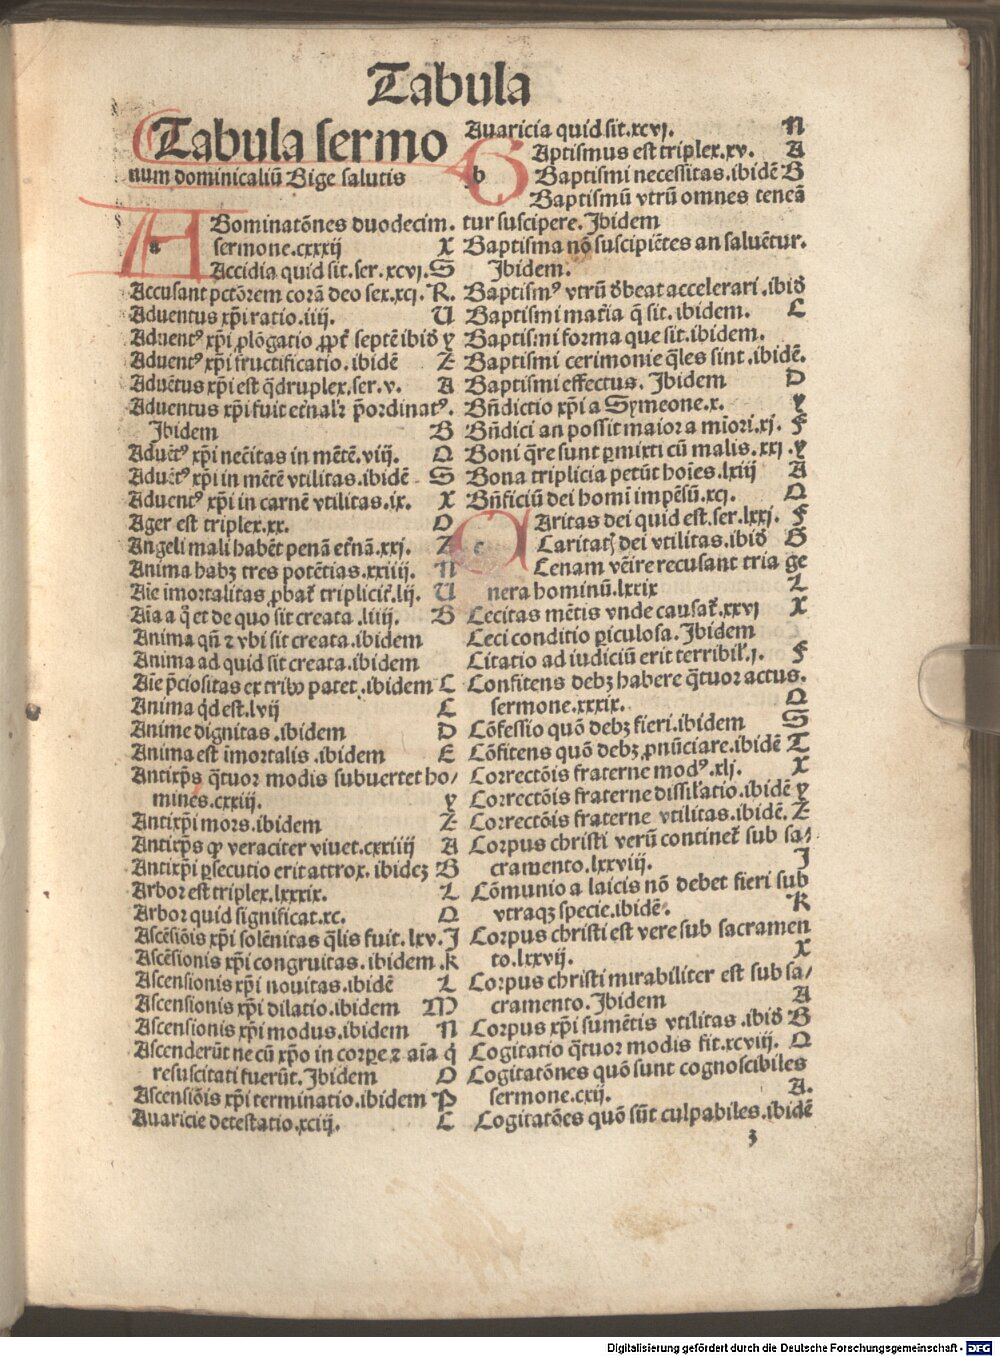 Tabula
Tabula sermo
num dominicaliũ Bige salutis
a ABominatõnes duodecim.
sermone.cxxxij X
Accidia quid sit.ser.xcvj.S
Accusant pctõrem corã deo sex.xcj.R.
Aduentus xp̄i ratio.iiij. U
Aduentꝰ xp̄i ꝓlõgatio ꝓpt̃ septẽ ibid̃ y
Aduentꝰ xp̄i fructificatio.ibidẽ Z
Aduẽtus xp̄i est q̃druplex.ser.v. A
Aduentus xp̄i fuit et̃nal'r p̄ordinatꝰ.
Ibidem B
Aduẽtꝰ xp̄i nec̃itas in mẽtẽ.viij. Q
Aduẽtꝰ xp̄i in mẽtẽ vtilitas.ibidẽ S
Aduentꝰ xp̄i in carnẽ vtilitas.ix. X
Ager est triplex.xx. O
Angeli mali habẽt penã et̃nã.xxj. Z
Anima habꝫ tres potẽtias.xxiiij. N
Aĩe ĩmortalitas ꝓbat̃ triplicit̃.lij. U
Aĩa a q̃ et de quo sit creata.liiij. B
Anima qñ ⁊ vbi sit creata.ibidem
Anima ad quid sit creata.ibidem
Aĩe p̄ciositas ex tribꝰ patet.ibidem C
Anima q̇d est.lvij C
Anime dignitas.ibidem D
Anima est ĩmortalis.ibidem E
Antixp̄s q̃tuor modis subuertet ho/
mines.cxxiij. y
Antixp̄i mors.ibidem Z
Antixp̄s ꝙ veraciter viuet.cxxiiij A
Antixp̄i ꝑsecutio erit attrox.ibideꝫ B
Arbor est triplex.lxxxix. L
Arbor quid significat.xc. O
Ascẽsiõis xp̄i solẽnitas q̃lis fuit.lxv.J
Ascẽsionis xp̄i congruitas.ibidem.k
Ascensionis xp̄i nouitas.ibidẽ L
Ascensionis xp̄i dilatio.ibidem M
Ascensionis xp̄i modus.ibidem N
Ascenderũt ne cũ xp̄o in corꝑe ⁊ aĩa q̇
resuscitati fuerũt.Ibidem O
Ascensiõis xp̄i terminatio.ibidem P
Auaricie detestatio.xciij. C
Auaricia quid sit.xcvj. N
b BAptismus est triplex.xv. A
Baptismi necessitas.ibidẽ B
Baptismũ vtrũ omnes teneã
tur suscipere.Ibidem
Baptisma nõ suscipiẽtes an saluẽtur.
Ibidem.
Baptismꝰ vtrũ d̃beat accelerari.ibid̃
Baptismi mat̃ia q̃ sit.ibidem. C
Baptismi forma que sit.ibidem.
Baptismi cerimonie q̃les sint.ibidẽ.
Baptismi effectus.Ibidem D
Bñdictio xp̄i a Symeone.x. y
Bñdici an possit maior a mĩori.xj. F
Boni q̃re sunt ꝑmixti cũ malis.xxj.y
Bona triplicia petũt hoĩes.lxiij A
Bñficiũ dei homĩ impẽsũ.xcj. Q
c CAritas dei quid est.ser.lxxj. F
Caritatꝭ dei vtilitas.ibid̃ G
Cenam vẽire recusant tria ge
nera hominũ.lxxix L
Cecitas mẽtis vnde causat̃.xxvj X
Ceci conditio ꝑiculosa.Ibidem
Citatio ad iudiciũ erit terribil'.j. F
Confitens debꝫ habere q̃tuor actus.
sermone.xxxix. Q
Cõfessio quõ debꝫ fieri.ibidem S
Cõfitens quõ debꝫ ꝓnũciare.ibidẽ T
Correctõis fraterne modꝰ.xlj. X
Correctõis fraterne dissil'atio.ibidẽ y
Correctõis fraterne vtilitas.ibidẽ.Z
Corpus christi verũ continet̃ sub sa/
cramento.lxxviij. J
Cõmunio a laicis nõ debet fieri sub
vtraqꝫ specie.ibidẽ. K
Corpus christi est vere sub sacramen
to.lxxvij. X
Corpus christi mirabiliter est sub sa/
cramento.Ibidem A
Corpus xp̄i sumẽtis vtilitas.ibid̃ B
Cogitatio q̃tuor modis fit.xcviij. Q
Cogitatõnes quõ sunt cognoscibiles
sermone.cxij. A.
Cogitatões quõ sũt culpabiles.ibidẽ
3
Digitalisierung gefördert durch die Deutsche Forschungsgemeinschaft - DFG